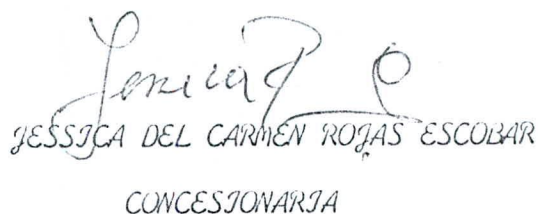 Jessica R
JESSICA DEL CARMEN ROJAS ESCOBAR
CONCESIONARIA